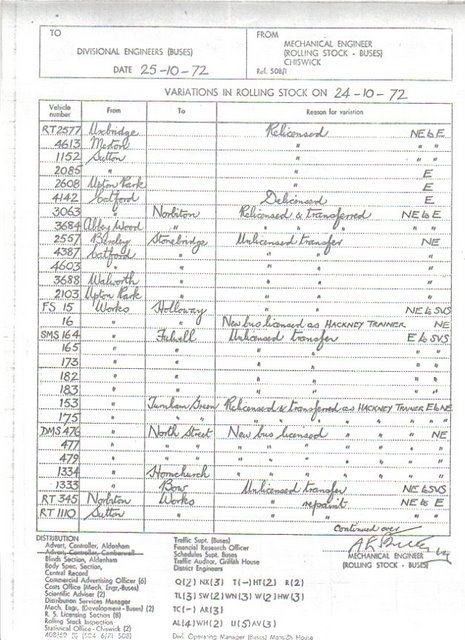 TO
DIVISIONAL ENGINEERS (BUSES)
DATE 25-10-72
FROM
MECHANICAL ENGINEER
(ROLLING STOCK - BUSES)
CHISWICK
Ref. 508/1
VARIATIONS IN ROLLING STOCK ON 24-10-72
Vehicle number From To Reason for variation
RT2577 Uxbridge Relicensed NE to E
4613 Merton " " "
1152 Sutton " " "
2085 " " E
2608 Upton Park " E
4142 Catford Delicensed E
3063 " Norbiton Relicensed & transferred NE to E
3684 Abbey Wood " " " " " "
2557 Bexley Stonebridge Unlicensed transfer NE
4387 Catford " " " "
4603 " " " " "
3688 Walworth " " " "
2103 Upton Park " " " "
FS 15 Works Holloway " " NE to SVS
16 " " New bus licensed as HACKNEY TRAINER NE
SMS 164 " Fulwell Unlicensed transfer E to SVS
165 " " " " "
173 " " " " "
182 " " " " "
183 " " " " "
153 " Turnham Green Relicensed & transferred as HACKNEY TRAINER E to NE
175 " " " " " " "
DMS 476 " North Street New bus licensed " " NE
477 " " " " " " " "
479 " " " " " " " "
1334 " Hornchurch " " " " " "
1333 " Bow Unlicensed transfer NE to SVS
RT 345 Norbiton Works " repaint NE to E
RT 1110 Sutton " " " " "
Continued over
MECHANICAL ENGINEER
(ROLLING STOCK - BUSES)
DISTRIBUTION
Advert. Controller, Aldenham
Advert. Controller, Camberwell
Blinds Section, Aldenham
Body Spec. Section,
Central Record
Commercial Advertising Officer (6)
Costs Office (Mech. Eng.)
Scientific Adviser (2)
Distribution Services Manager
Mech. Engr. (Development - Buses) (2)
R. S. Licensing Section (8)
Rolling Stock Inspection
Statistical Office - Chiswick (2)
Traffic Supt. (Buses)
Financial Research Officer
Schedules Supt. Buses
Traffic Auditor, Griffith House
District Engineers
Q(2) NX(3) T(-) HT(2) R(2)
TL(3) SW(2) WN(3) W(2) HW(3)
TC(-) AR(3)
AL(4) WH(2) U(5) AV(3)
Divl. Operating Manager (Buses) Manor House